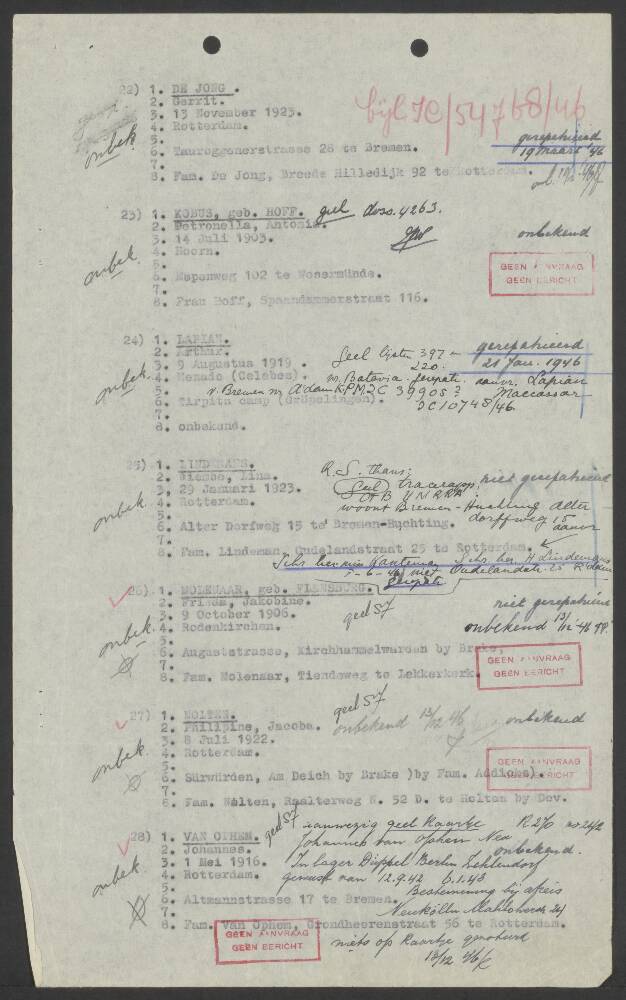 22) 1. DE JONG .
2. Gerrit.
3. 13 November 1923.
bijl JC/54768/46
4. Rotterdam.
5.
onbek
gerepatrieerd
19 Maart '46
6. Tauroggenerstrasse 28 te Bremen.
7.
8. Fam. De Jong, Breede Hilledijk 92 te Rotterdam.
23) 1. KOBUS, geb. HOFF. geel doss. 4263.
2. Petronella, Antonia.
3. 14 Juli 1903.
onbekend
4. Hoorn.
5.
onbek.
GEEN AANVRAAG
GEEN BERICHT
6. Mepenweg 102 te Wesermünde.
7.
8. Frau Hoff, Spaandammerstraat 116.
24) 1. LAPIAN.
2. Arthur.
Geel lijsten 397 -
220.
gerepatrieerd
21 Jan. 1946
3. 9 Augustus 1919 .
4. Menado (Celebes).
onbek.
5.
v. Bremen nr A'dam KPM JC 39905?
Maccassar
6. Tirpitz camp (Gröpelingen).
JC10748/46
7.
8. onbekend.
25) 1. LINDEMANS.
R.S. thans;
2. Wiesbe, Lina.
(Geel) tracerapp;
niet gerepatrieerd
3. 29 Januari 1923.
OTB UNRRA
4. Rotterdam.
woont Bremen - Huchting Alter
onbek
5.
dorffweg 15
6. Alter Dorfweg 15 te Bremen-Huchting.
7.
8. Fam. Lindeman, Oudelandstraat 25 te Rotterdam.
7-6-46 niet
Oudelandstr. 25 R'dam
26) 1. MOLENAAR, geb. FLENSBURG.
2. Frieda, Jakobine.
geel S7
niet gerepatrieerd
3. 9 October 1906.
4. Rodenkirchen.
onbekend 13/12 '46
onbek.
5.
6. Auguststrasse, Kirchhammelwarden by Brake,
7.
GEEN AANVRAAG
GEEN BERICHT
8. Fam. Molenaar, Tiendeweg te Lekkerkerk.
27) 1. NOLTEN.
geel S7
2. Philipine, Jacoba.
onbekend 13/12 46
onbekend
3. 8 Juli 1922.
4. Rotterdam.
onbek
5.
GEEN AANVRAAG
GEEN BERICHT
6. Sürwürden, Am Deich by Brake )by Fam. Addicks).
7.
8. Fam. Nolten, Raalterweg N. 52 D. te Holten by Dev.
geel S7
aanwezig geel Kaartje R276 no 242
28) 1. VAN OTHEM.
Johannes van Ophem Nea
2. Johannes.
onbekend.
3. 1 Mei 1916.
In lager Düppel Berlin Zehlendorf
4. Rotterdam.
geweest van 12.9.42 6.1.43
onbek
5.
Bestemming bij afreis
6. Altmannstrasse 17 te Bremen.
7.
Neukölln Mahlowerstr 24
8. Fam. Van Ophem, Grondheerenstraat 56 te Rotterdam.
GEEN AANVRAAG
GEEN BERICHT
niets op Kaartje genoteerd
13/12 46